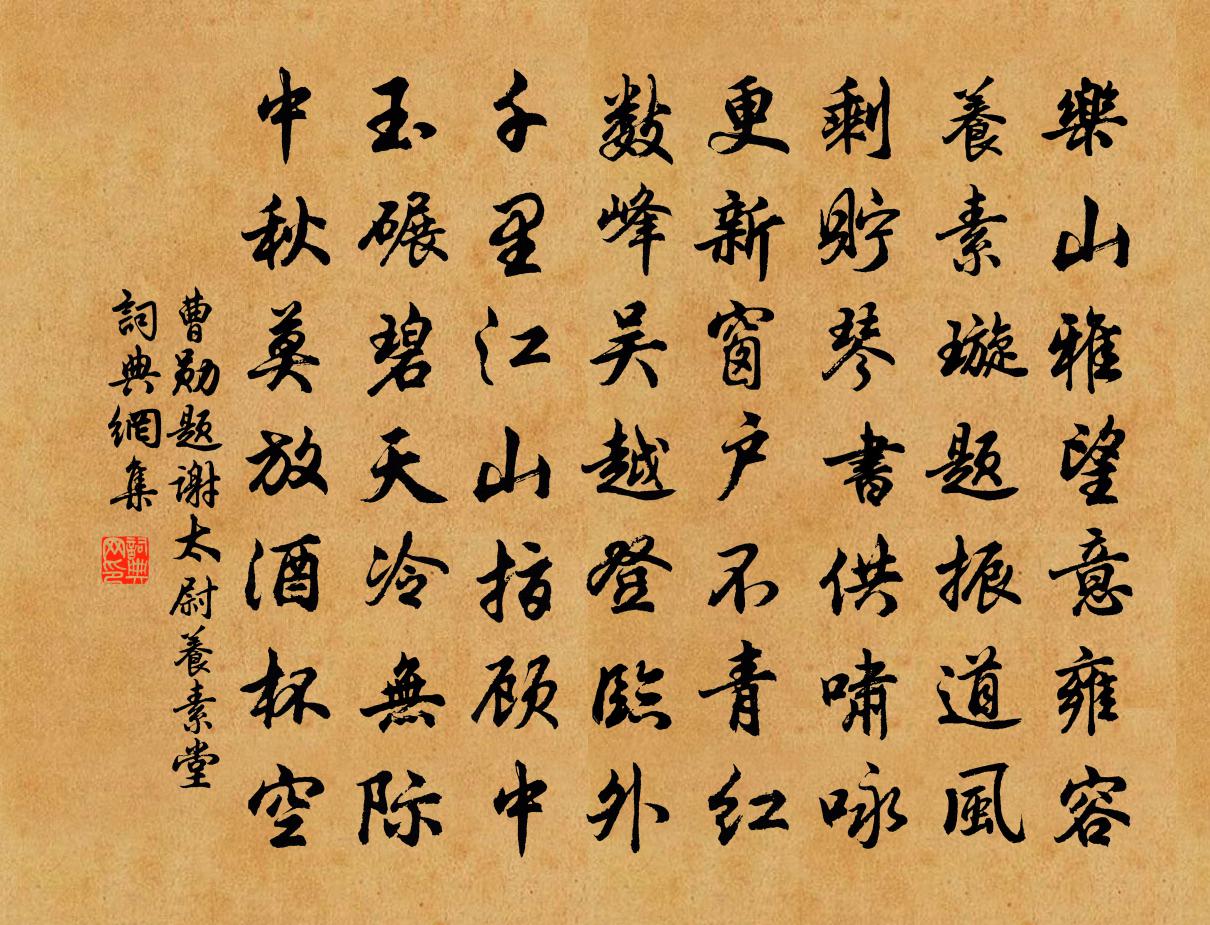 樂山雅望意雍容
養素璇題振道風
剩貯琴書供嘯咏
更新窗户不青红
數峰吴越登臨外
千里江山指顾中
玉碾碧天冷無际
中秋莫放酒杯空
曹勋题谢太尉養素堂
詞典網集
詞典网印